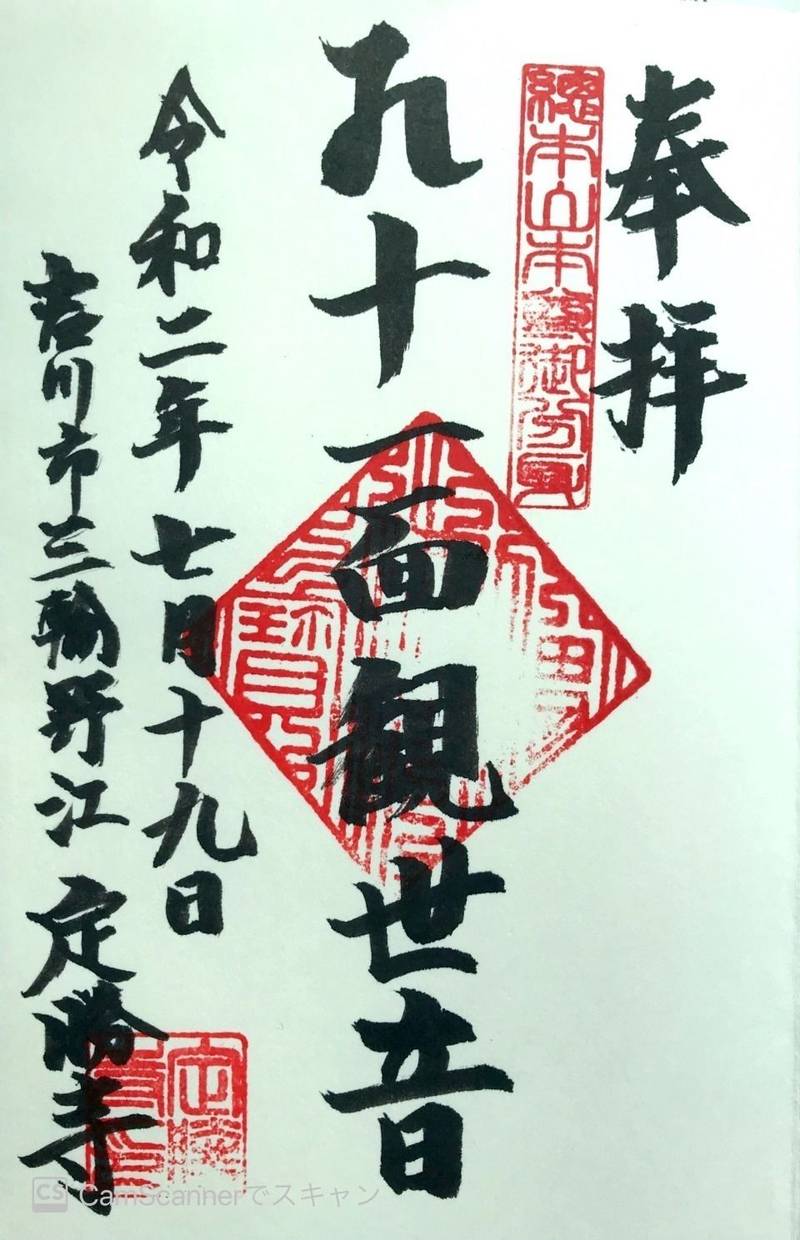 奉拝
總本山本尊御分身
十一面観世音
令和二年七月十九日
吉川市三輪野江 定勝寺
定勝寺印
CS CamScannerでスキャン